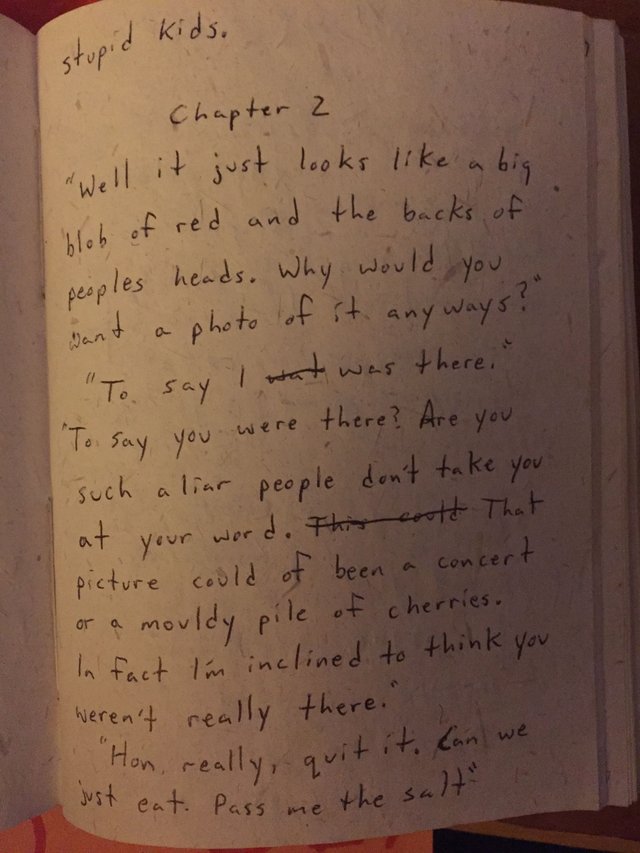 stupid kids.
Chapter 2
"Well it just looks like a big
blob of red and the backs of
peoples heads. Why would you
want a photo of it anyways?"
"To say I wat was there."
"To say you were there? Are you
such a liar people don't take you
at your word. This could That
picture could of been a concert
or a mouldy pile of cherries.
In fact I'm inclined to think you
weren't really there."
"Hon, really, quit it. Can we
just eat. Pass me the salt"